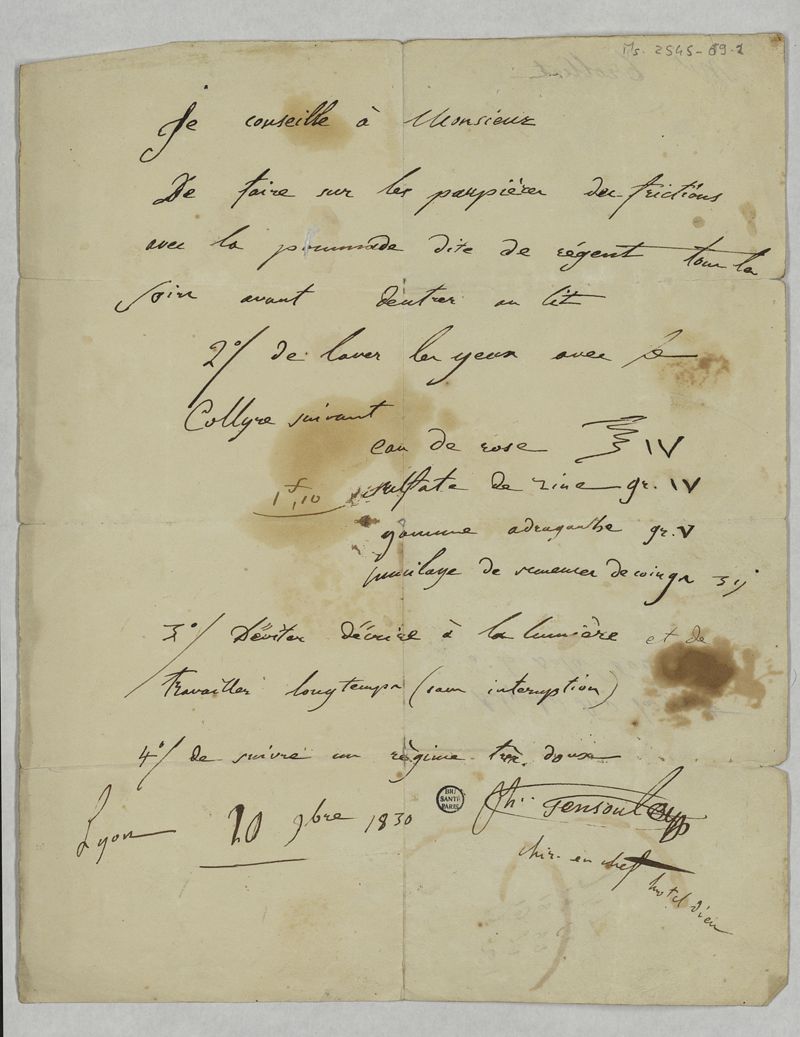 Ms. 2545-69-1
Je conseille à Monsieur
De faire sur les paupières des frictions
avec la pommade dite de régent tous les
soirs avant d'entrer au lit
2°/ de laver les yeux avec le
Collyre suivant
eau de rose ℥ IV
1f,10 sulfate de zinc gr. IV
gomme adraganthe gr. V
mucilage de semences de coings ʒ ij
3°/ D'éviter d'écrire à la lumière et de
travailler longtemps (sans interuption)
4°/ de suivre un régime très doux
Lyon 20 9bre 1830
BIU SANTE PARIS
chir. en chef hotel dieu